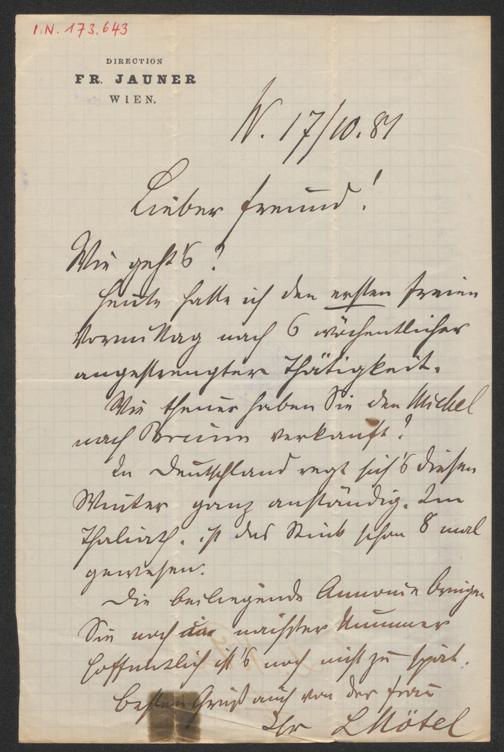 I.N. 173.643
DIRECTION
FR. JAUNER
WIEN.
W. 17/10. 81
Lieber Freund!
Wie geht's?
Heute hatte ich den ersten freien
Vormittag nach 6 wöchentlicher
angestrengter Thätigkeit.
Wie theuer haben Sie den Michel
nach Brünn verkauft?
In Deutschland regt sich's diesen
Winter ganz anständig. Im
Thaliath. ist das Stück schon 8 mal
gewesen.
Die beiliegende Annonce bringen
Sie noch nächster Nummer
hoffentlich ist's noch nicht zu spät.
Besten Gruß auch von der Frau
Ihr